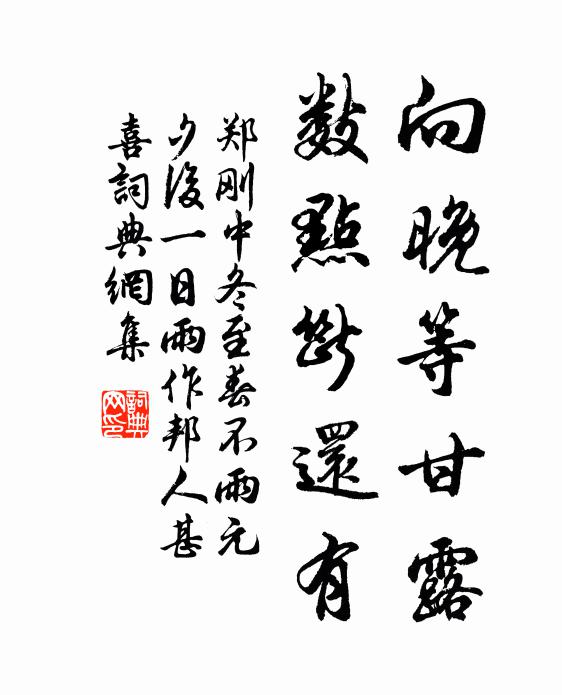 向晚等甘露
數點斷還有
郑刚中冬至春不雨元
夕後一日雨作邦人甚
喜詞典網集
詞典
网印